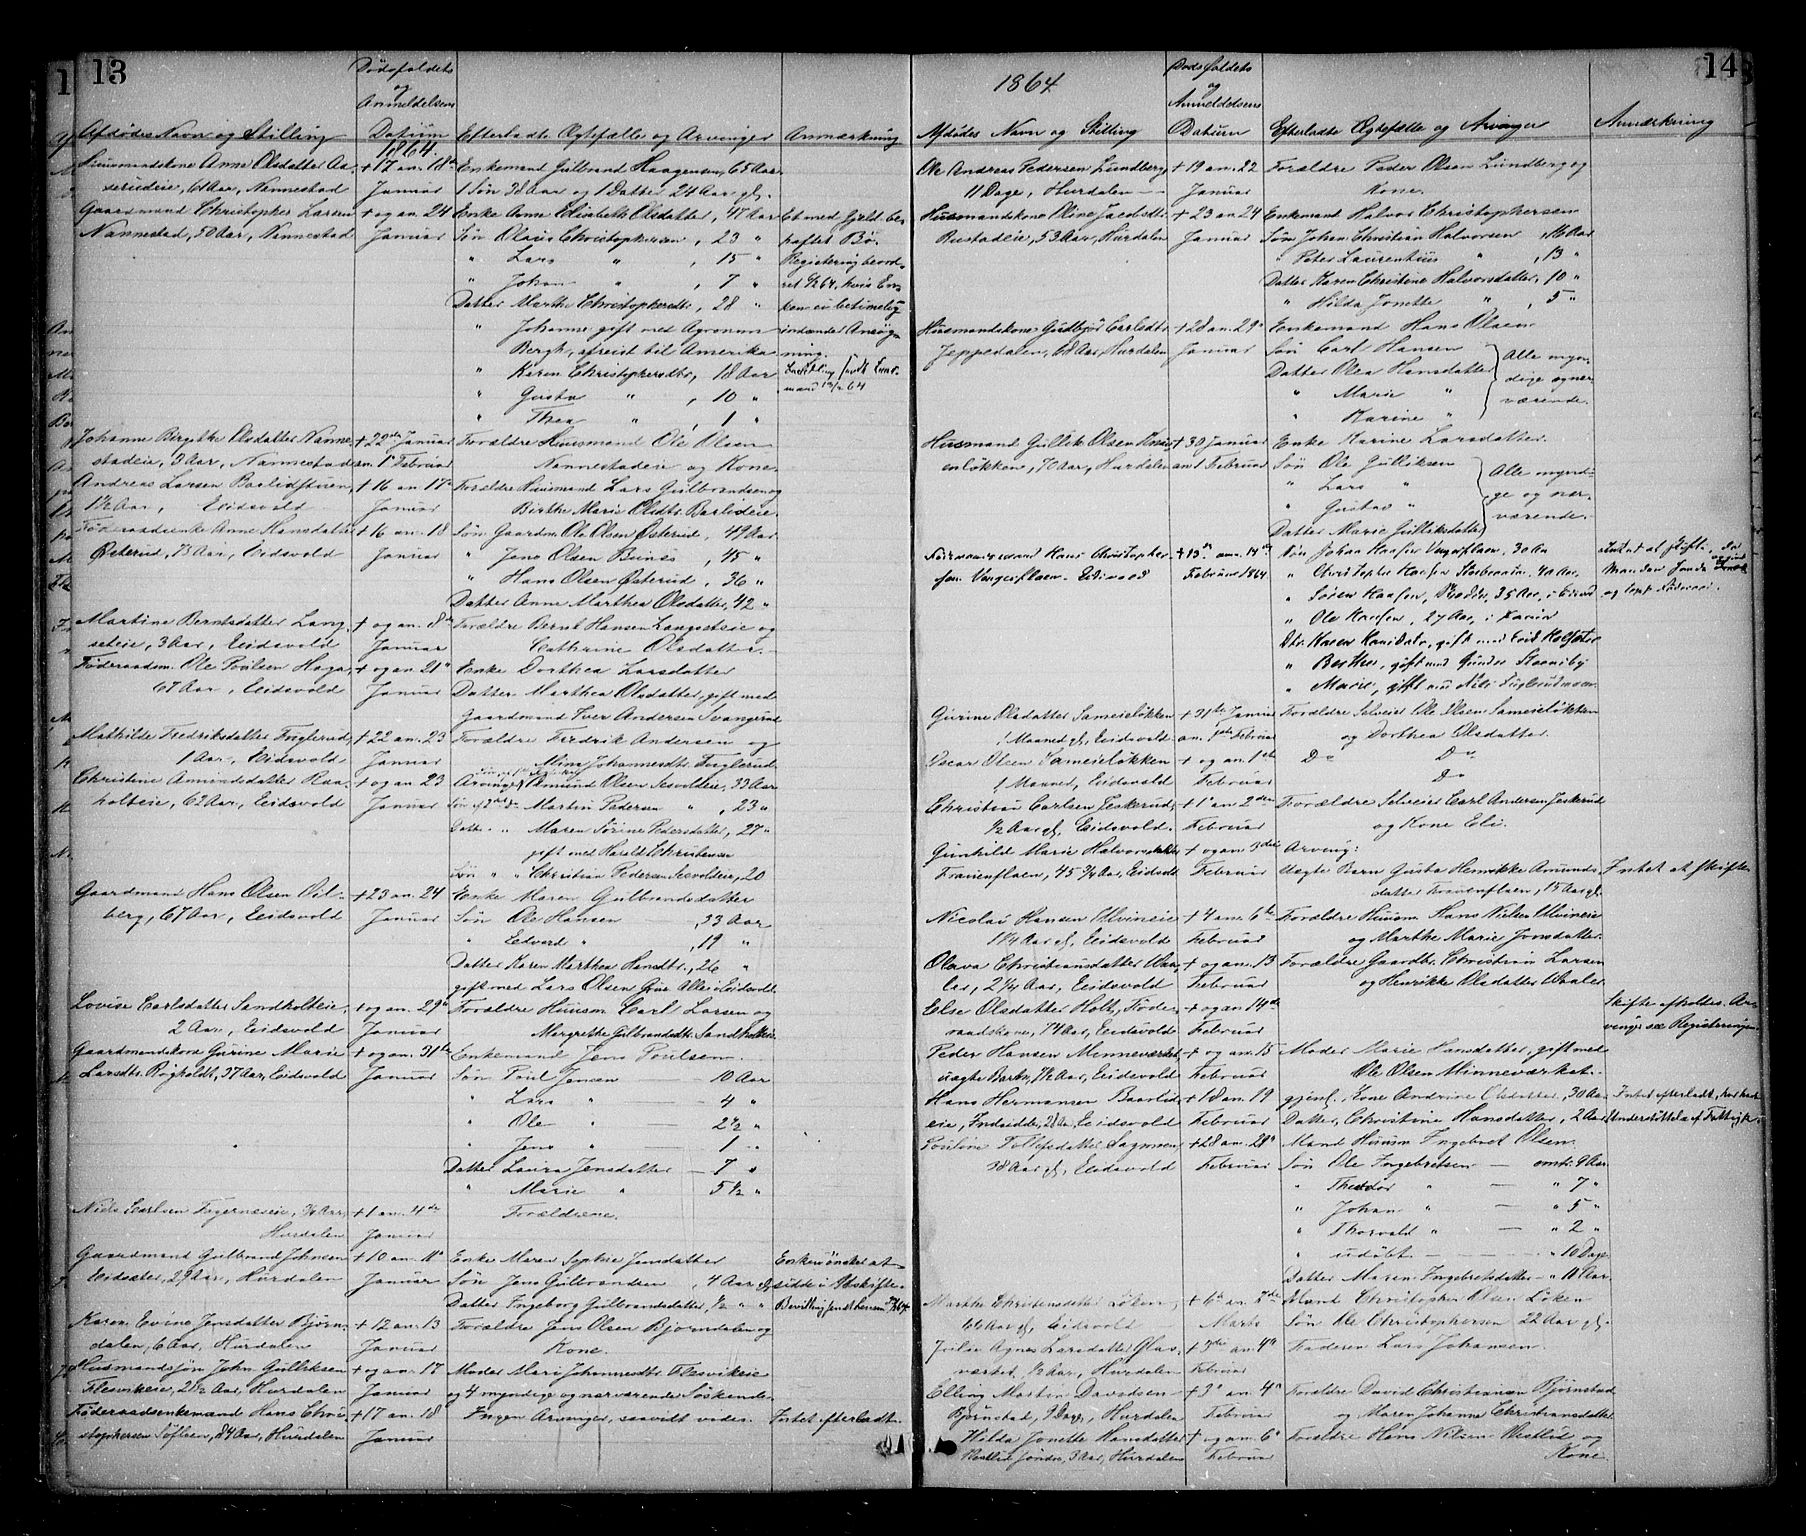 13
Dødsfaldets
og
Anmeldelsens
Afdødes Navn og Stilling Datum Efterladte Ægtefælle og Arvinger Anmærkning
1864.
Huusmandskone Anne Olsdatter Aa- + 17 an. 18de Enkemand Gulbrand Haagensen, 65 Aar
serudeie, 61 Aar, Nannestad Januar 1 Søn 38 Aar og 1 Datter 24 Aar gl.
Gaardmand Christopher Larsen + og an. 24 Enke Anne Elisabeth Olsdatter, 47 Aar Et med Gjeld be-
Nannestad, 50 Aar, Nannestad Januar Søn Olaus Christophersen, 23 " haftet Bo.
" Lars " , 15 " Registering beord-
" Johan " , 7 " ret 2/2 64, hvis En-
Datter Marthe Christophersdtr, 28 " ken ei betimelig
" Johanne gift med Agronom indsender Ansøg-
Bergh, afreist til Amerika ning.
" Karen Christophersdtr, 18 Aar
" Gusta " , 10 " mand 13/2 64
" Thea " , 1 "
Johanne Birgithe Olsdatter Nanne- + 22de Januar Forældre Huusmand Ole Olsen
stadeie, 3 Aar, Nannestad an. 1e Februar Nannestadeie og Kone.
Andreas Larsen Baarlidstuen, + 16 an. 17e Forældre Huusmand Lars Gulbrandsen og
1½ Aar, Eidsvold Januar Birthe Marie Olsdtr. Baarlideie.
Føderaadsenke Anne Hansdatter + 16 an. 18 Søn Gaardm. Ole Olsen Østerud, 49 Aar
Østerud, 73 Aar, Eidsvold Januar " Jens Olsen , 45 "
" Hans Olsen Østerud, 36 "
Datter Anne Marthea Olsdatter, 42 "
Martine Berntsdatter Lang- + og an. 8de Forældre Bernt Hansen Langseteie og
seteie, 3 Aar, Eidsvold Januar Cathrine Olsdatter.
Føderaadsm. Ole Poulsen Haga, + og an. 21e Enke Dorthea Larsdatter
67 Aar, Eidsvold Januar Datter Marthea Olsdatter, gift med
Gaardmand Iver Andersen Svangerud
Mathilde Fredriksdatter Fuglerud, + 22 an. 23 Forældre Fredrik Andersen og
1 Aar, Eidsvold Januar Mina Johannesdtr. Fuglerud.
Christine Amundsdatter Raa- + og an. 23 Arvinger Amund Olsen , 33 Aar
holteie, 62 Aar, Eidsvold Januar Søn af 2det Martin Pedersen " , 23 "
Datt. " Maren Sørine Pedersdatter, 27 "
gift med Harald Christensen
Søn " " Christian Pedersen , 20
Gaardmand Hans Olsen Vil- + 23 an. 24 Enke Maren Gulbrandsdatter
berg, 67 Aar, Eidsvold Januar Søn Ole Hansen , 33 Aar
" Edvard " , 19 "
Datter Karen Marthea Hansdtr., 26 "
gift med Lars Olsen Alle i Eidsvold
Lovise Carlsdatter Sandholteie, + og an. 29e Forældre Huusm. Carl Larsen og
2 Aar, Eidsvold Januar Margrethe Gulbrandsdtr. Sandholteie.
Gaardmandskone Gurine Marie + og an. 31te Enkemand Jens Poulsen.
Larsdtr. Røgholdt, 37 Aar, Eidsvold Januar Søn Poul Jensen — 10 Aar
" Lars " — 4 "
" Ole " — 2½ "
" Jens " — 1 "
Datter Laura Jensdatter — 7 "
" Marie " 5½ "
Niels Carlsen Fagernæseie, ¾ Aar, + 1 an. 4de Forældrene.
Hurdalen Januar
Gaardmand Gulbrand Johnsen + 10 an. 11e Enke Maren Sophie Jensdatter Enken ønsket at
Eidsæter, 29 Aar, Hurdalen Januar Søn Jens Gulbrandsen, 4 Aar gl. sidde i Uskifte.
Datter Ingeborg Gulbrandsdatter, ½ " " Bevilling sendt hersm
Karen Evine Jensdatter Bjørn- + 12 an. 13 Forældre Jens Olsen Bjørndalen og
dalen, 6 Aar, Hurdalen Januar Kone.
Husmandssøn John Gulliksen + og an. 17 Moder Mari Johannesdtr. Flesvikeie
Flesvikeie, 21½ Aar, Hurdalen Januar og 4 myndige og nærværende Søskende.
Føderaadsenkemand Hans Chri- + 17 an. 18 Ingen Arvinger, saavidt vides. Intet efterladt.
stophersen Søflien, 84 Aar, Hurdalen Januar
14
1864
Dødsfaldets
og
Anmeldelsens
Afdødes Navn og Stilling Datum Efterladte Ægtefælle og Arvinger Anmærkning
Ole Andreas Pedersen Lundberg + 19 an. 22 Forældre Peder Olsen Lundberg og
11 Dage, Hurdalen — Januar Kone.
Husmandskone Oline Jacobsdtr. + 23 an 24 Enkemand Halvor Christophersen
Rustadeie, 53 Aar, Hurdalen Januar Søn Johan Christian Halvorsen , 16 Aar
" Peter Laurentius " , 13 "
Datter Karen Christine Halvorsdatter, 10 "
" Hilda Jonette " , 5 "
Husmandskone Gudbjør Carlsdtr. + 28 an. 29e Enkemand Hans Olsen
Jeppedalen, 68 Aar, Hurdalen Januar Søn Carl Hansen
Datter Olea Hansdatter Alle myn-
" Marie " dige og nær-
" Karine " værende.
Husmand Gullik Olsen + 30 Januar Enke Karine Larsdatter.
enløkkene, 70 Aar, Hurdalen an 1 Februar Søn Ole Gulliksen
" Lars " Alle myndi-
" Gustav " ge og nær-
Datter Marie Gulliksdatter værende.
Føderaadsmand Hans Christopher- + 13de anm. 14de Søn Johan Hansen Vangesflaen, 30 Aar Intet at skifte, da
sen Vangesflaen, Eidsvold Februar 1864 " Christopher Hansen , 40 Aar, Manden
" Søren Hansen, , 35 Aar, i Eidsvold
" Ole Hansen, 27 Aar, i
Dtr. Karen Hansdatr, gift med Erik
" Berthe, gift med Gunder
" Marie, gift med Nils Fuglerudmoen
Gurine Olsdatter Sameieløkken + 31te Januar Forældre Selveier Ole Olsen Sameieløkken
1 Maaned gl, Eidsvold an. 1ste Februar og Dorthea Olsdatter.
Oscar Olsen Sameieløkken + og an. 1ste Do Do
1 Maaned, Eidsvold Februar Do
Christian Carlsen Jeskerud, + 1e an 2den Forældre Selveier Carl Andersen Jeskerud
½ Aar gl, Eidsvold. Februar og Kone Eli.
Gunhild Marie Halvorsdatter + og an. 3die Arving:
Traneflaen, 45 ¾ Aar, Eidsvold Februar Uægte Barn Gusta Henrikke Amunds- Intet at skifte
datter Traneflaen, 15 Aar gl.
Nicolai Hansen Ulvineie + 4 an. 6te Forældre Huusm. Hans Nielsen Ulvineie
1¼ Aar gl, Eidsvold Februar og Marthe Marie Jonsdatter.
Olava Christiansdatter Waa- + og an. 13 Forældre Gaardbr. Christian Larsen
ler, 2¼ Aar, Eidsvold Februar og Henrikke Olsdatter Waaler
Else Olsdatter Holt, Føde- + og an 14de Skifte afholdes. Ar-
raadskone, 74 Aar, Eidsvold Februar vinger see Registeringen.
Peder Hansen Minneværket, + og an. 15 Moder Marie Hansdatter, gift med
uægte Barn, 7½ Aar, Eidsvold Februar Ole Olsen Minneværket.
Hans Hermansen Baarlid- + 18 an. 19 gjenl. Kone Andrine Olsdatter, 30 Aar Intet efterladt, har havt
eie, Inderst, 28 Aar, Eidsvold Februar Datter, Christine Hansdatter, 2 Aar Understøttelse af Fattigk.
Lovise Tollefsdatter Sagmoen + 28 an. 28e Mand Huusm. Ingebret Olsen.
38 Aar gl, Eidsvold Februar Søn Ole Ingebretsen — omtr. 9 Aar.
" Theodor " — " 7 "
" Johan " — " 5 "
" Thorvald " — " 2 "
" udøbt — " 10 Dage
Datter Maren Ingebretsdatter — " 11 Aar.
Marthe Christensdatter Løken, + 6te an. 7de Mand Christopher Olsen Løken
66 Aar gl, Eidsvold — Marts Søn Ole Christophersen 22 Aar gl.
Julie Agnes Larsdatter Glas- + 3die an. 4e Faderen Lars Johansen.
værket, ½ Aar, Hurdalen Februar
Elling Martin Davidsen + 3e an. 4e Forældre David Christiansen Bjørnstad
Bjørnstad, 9 Dage, Hurdalen Februar og Maren Johanne Christiansdatter
Hilda Jonette Hansdatter + og an. 6e Forældre Hans Nilsen Westlid og
Westlid Søndre, 3 Aar, Hurdalen Februar Kone